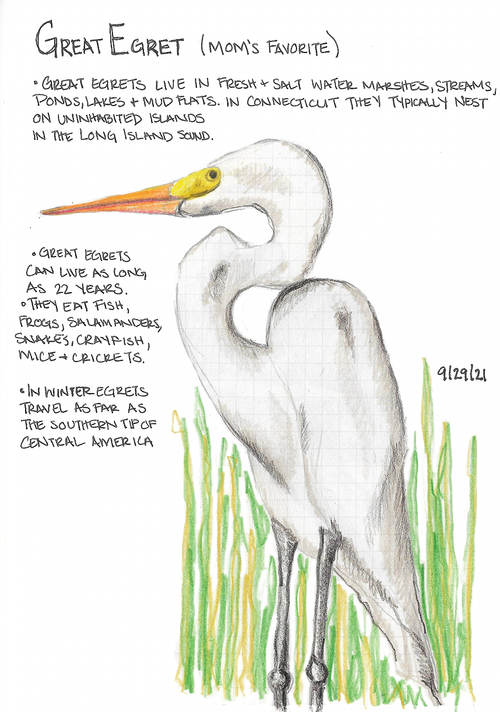 GREAT EGRET (MOM'S FAVORITE)
• GREAT EGRETS LIVE IN FRESH + SALT WATER MARSHES, STREAMS,
PONDS, LAKES + MUD FLATS. IN CONNECTICUT THEY TYPICALLY NEST
ON UNINHABITED ISLANDS
IN THE LONG ISLAND SOUND.
• GREAT EGRETS
CAN LIVE AS LONG
AS 22 YEARS.
• THEY EAT FISH,
FROGS, SALAMANDERS,
SNAKE'S, CRAYFISH,
MICE + CRICKETS.
9/29/21
• IN WINTER EGRETS
TRAVEL AS FAR AS
THE SOUTHERN TIP OF
CENTRAL AMERICA